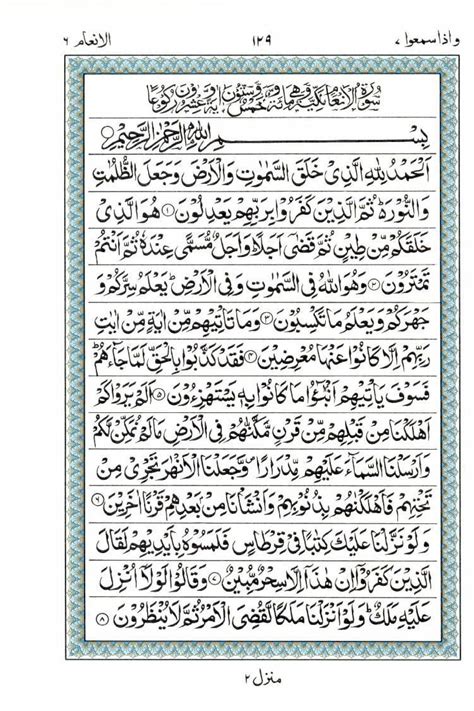 الانعام ٦ ١٢٩ واذاسمعوا ٧
سُوْرَةُ الْاَنْعَامِ مَكِّيَّةٌ وَّهِيَ مِائَةٌ وَّخَمْسٌ وَّسِتُّوْنَ اٰيَةً وَّعِشْرُوْنَ رُكُوْعًا
بِسْمِ اللّٰهِ الرَّحْمٰنِ الرَّحِيْمِ
اَلْحَمْدُ لِلّٰهِ الَّذِيْ خَلَقَ السَّمٰوٰتِ وَالْاَرْضَ وَجَعَلَ الظُّلُمٰتِ
وَالنُّوْرَ ەؕ ثُمَّ الَّذِيْنَ كَفَرُوْا بِرَبِّهِمْ يَعْدِلُوْنَ ۝١ هُوَ الَّذِيْ
خَلَقَكُمْ مِّنْ طِيْنٍ ثُمَّ قَضٰٓى اَجَلًا ؕ وَاَجَلٌ مُّسَمًّى عِنْدَهٗ ثُمَّ اَنْتُمْ
تَمْتَرُوْنَ ۝٢ وَهُوَ اللّٰهُ فِي السَّمٰوٰتِ وَفِي الْاَرْضِ ؕ يَعْلَمُ سِرَّكُمْ وَ
جَهْرَكُمْ وَيَعْلَمُ مَا تَكْسِبُوْنَ ۝٣ وَمَا تَاْتِيْهِمْ مِّنْ اٰيَةٍ مِّنْ اٰيٰتِ
رَبِّهِمْ اِلَّا كَانُوْا عَنْهَا مُعْرِضِيْنَ ۝٤ فَقَدْ كَذَّبُوْا بِالْحَقِّ لَمَّا جَآءَهُمْ ؕ
فَسَوْفَ يَاْتِيْهِمْ اَنْۢبٰٓؤُا مَا كَانُوْا بِهٖ يَسْتَهْزِءُوْنَ ۝٥ اَلَمْ يَرَوْا كَمْ
اَهْلَكْنَا مِنْ قَبْلِهِمْ مِّنْ قَرْنٍ مَّكَّنّٰهُمْ فِي الْاَرْضِ مَا لَمْ نُمَكِّنْ لَّكُمْ
وَاَرْسَلْنَا السَّمَآءَ عَلَيْهِمْ مِّدْرَارًا ۪ وَّجَعَلْنَا الْاَنْهٰرَ تَجْرِيْ مِنْ
تَحْتِهِمْ فَاَهْلَكْنٰهُمْ بِذُنُوْبِهِمْ وَاَنْشَاْنَا مِنْۢ بَعْدِهِمْ قَرْنًا اٰخَرِيْنَ ۝٦
وَلَوْ نَزَّلْنَا عَلَيْكَ كِتٰبًا فِيْ قِرْطَاسٍ فَلَمَسُوْهُ بِاَيْدِيْهِمْ لَقَالَ
الَّذِيْنَ كَفَرُوْٓا اِنْ هٰذَآ اِلَّا سِحْرٌ مُّبِيْنٌ ۝٧ وَقَالُوْا لَوْلَآ اُنْزِلَ
عَلَيْهِ مَلَكٌ ؕ وَلَوْ اَنْزَلْنَا مَلَكًا لَّقُضِيَ الْاَمْرُ ثُمَّ لَا يُنْظَرُوْنَ ۝٨
منزل ٢